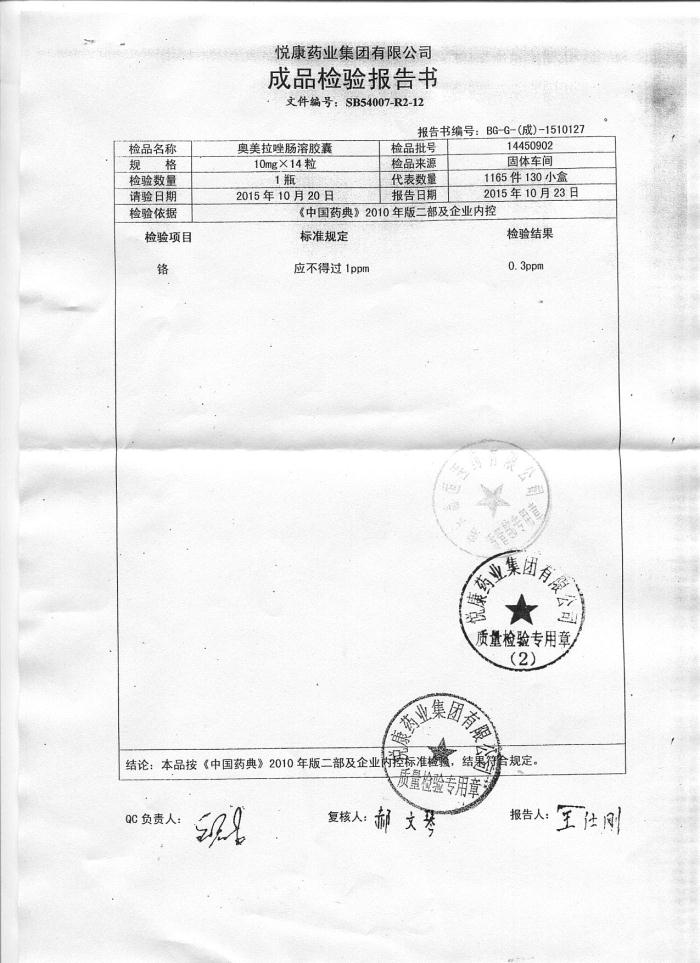 悦康药业集团有限公司
成品检验报告书
文件编号：SB54007-R2-12
报告书编号：BG-G-(成)-1510127
检品名称 奥美拉唑肠溶胶囊 检品批号 14450902
规 格 10mg×14粒 检品来源 固体车间
检验数量 1瓶 代表数量 1165件130小盒
请验日期 2015年10月20日 报告日期 2015年10月23日
检验依据 《中国药典》2010年版二部及企业内控
检验项目 标准规定 检验结果
铬 应不得过1ppm 0.3ppm
有限公司
悦康药业集团有限公司
质量检验专用章
(2)
悦康药业集团有限公司
质量检验专用章
结论：本品按《中国药典》2010年版二部及企业内控标准检验，结果符合规定。
QC负责人： 复核人：郝文琴 报告人：王仕刚